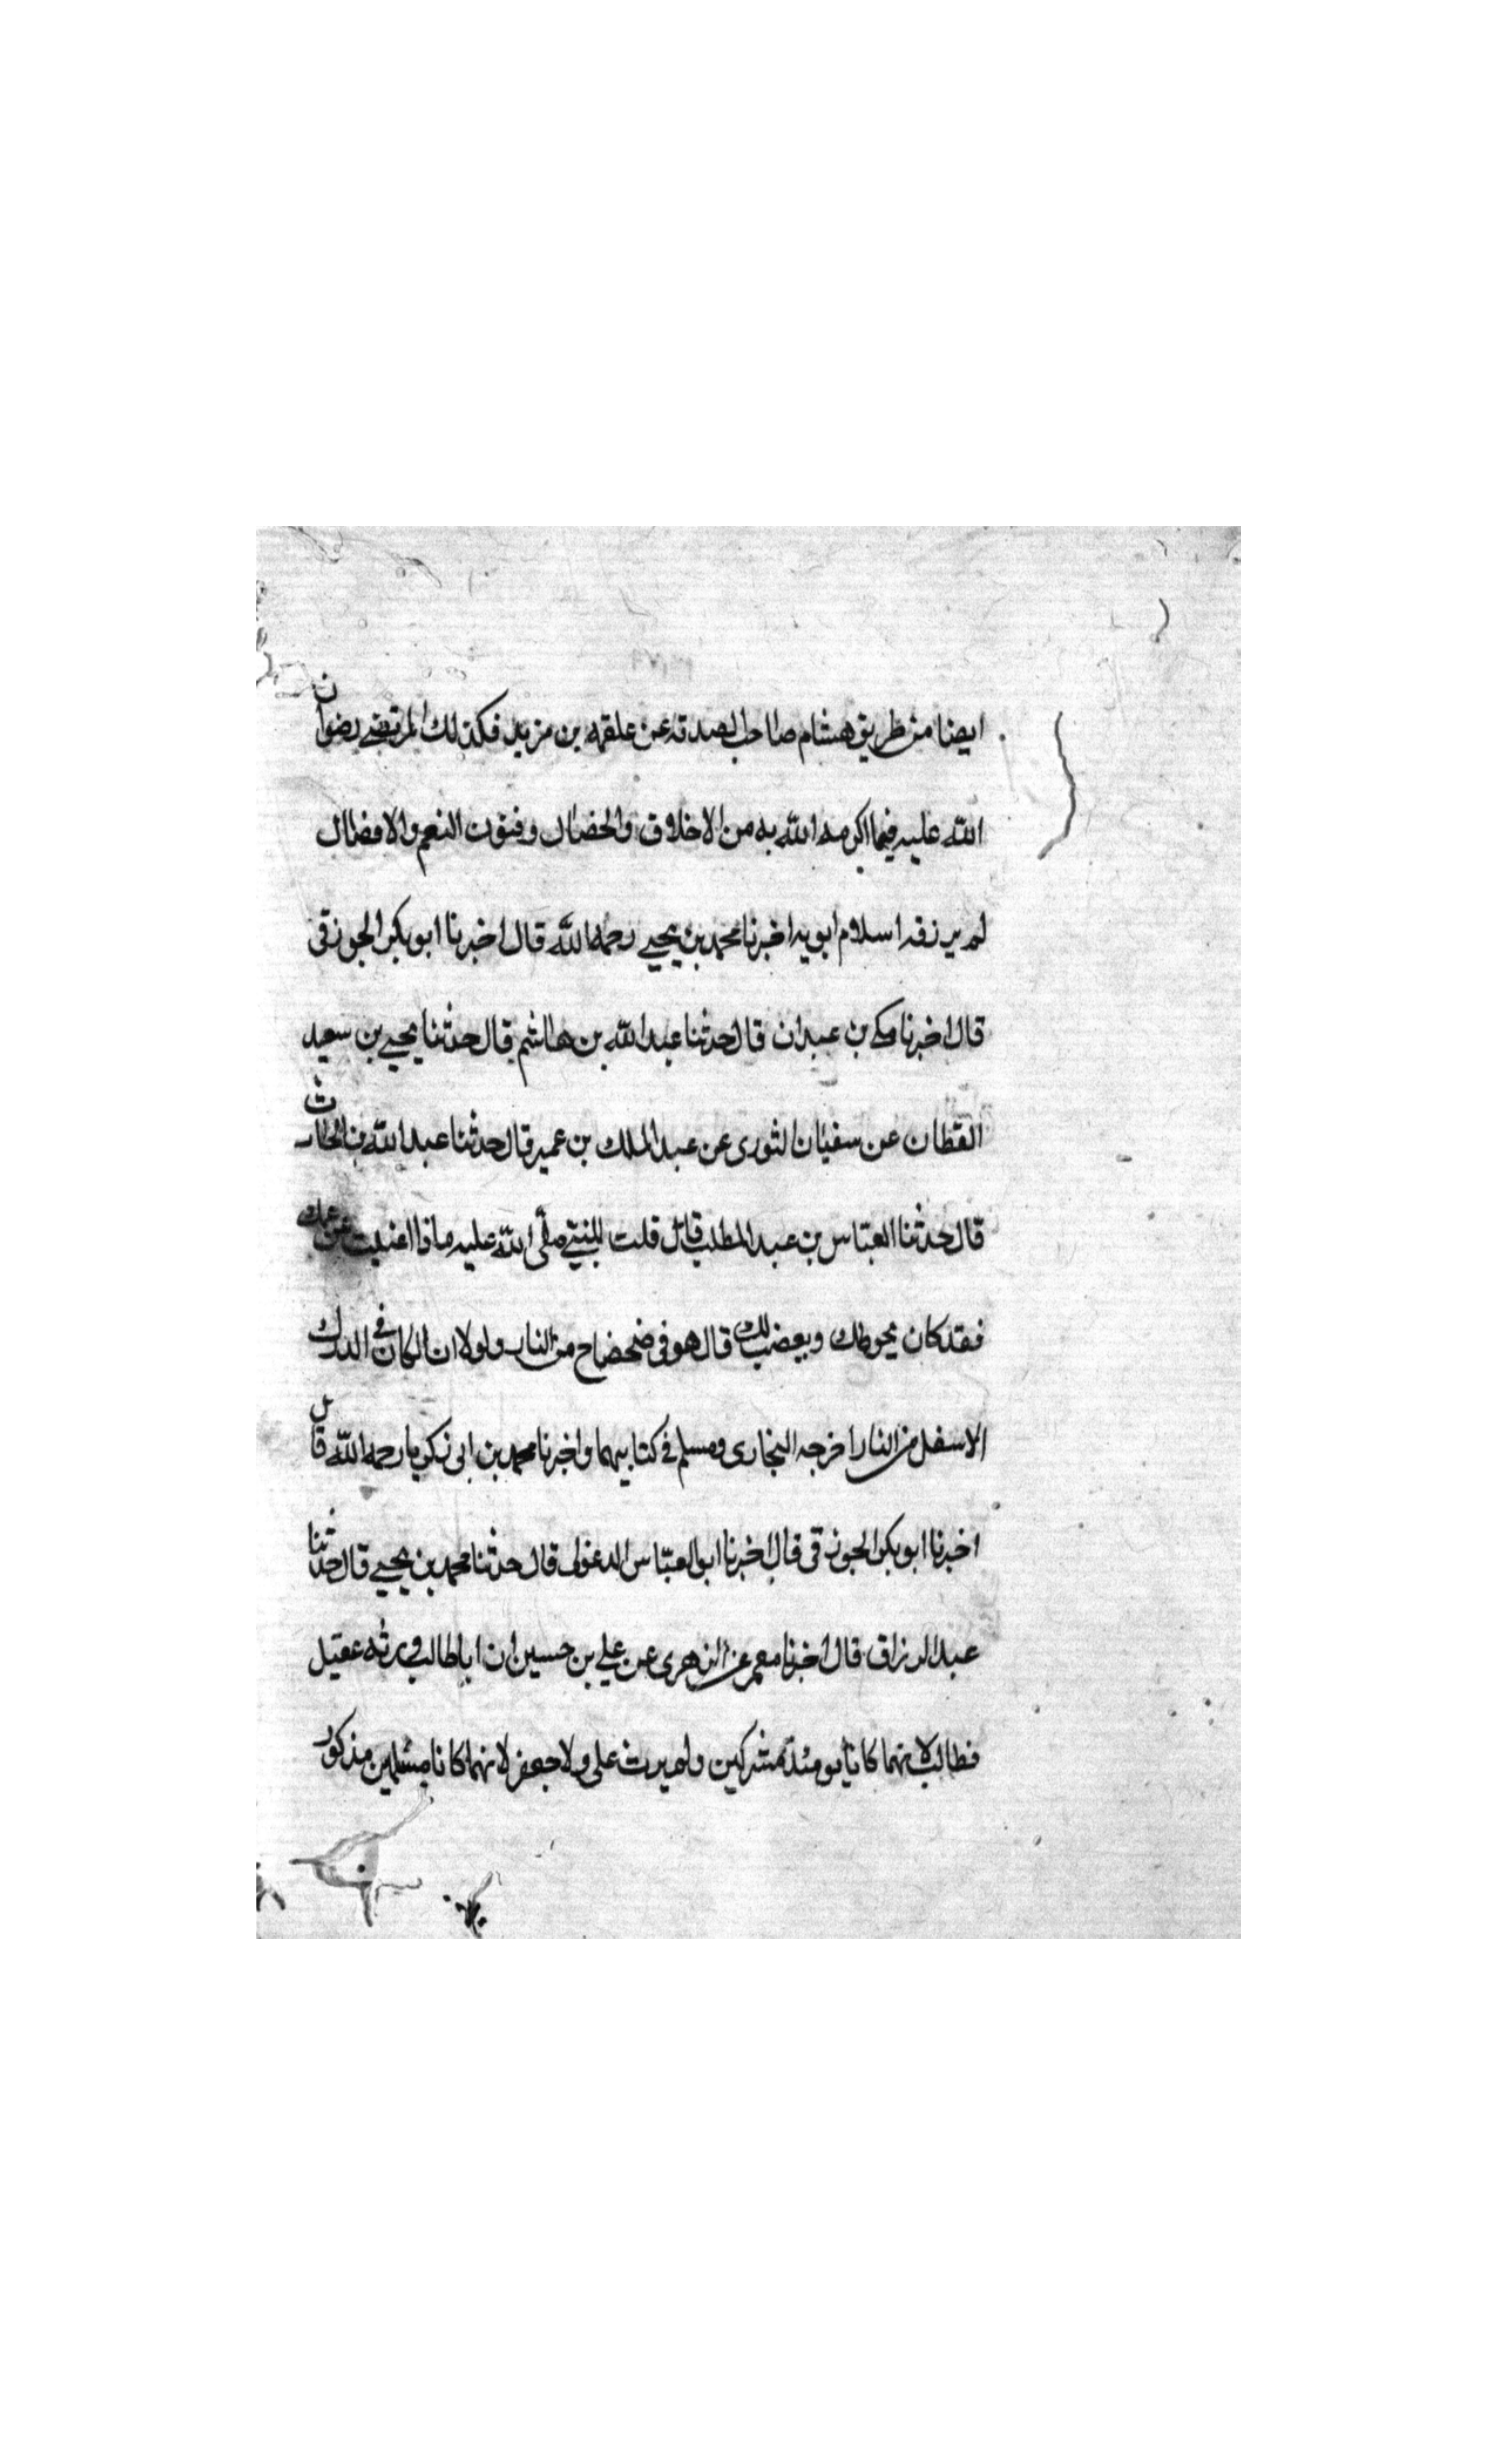 ايضا من طريق هشام صاحب الصدقة عن علقمه بن مزيد فكذلك المرتضى رضوان
الله عليه فيما اكرمه الله به من الاخلاق والخصال وفنون النعم والافضال
لم يرزقه اسلام ابويه اخبرنا محمد بن يحيى رحمه الله قال اخبرنا ابو بكر الجوزقى
قال اخبرنا مكى بن عبدان قال حدثنا عبد الله بن هاشم قال حدثنا يحيى بن سعيد
القطان عن سفيان الثورى عن عبد الملك بن عمير قال حدثنا عبد الله بن الحارث
قال حدثنا العباس بن عبد المطلب قال قلت للنبى صلى الله عليه ماذا اغنيت عن عمك
فقد كان يحوطك ويغضب لك قال هو فى ضحضاح من النار ولولا انا لكان فى الدرك
الاسفل من النار اخرجه البخارى ومسلم فى كتابيهما واخبرنا محمد بن ابى زكريا رحمه الله قال
اخبرنا ابو بكر الجوزقى قال اخبرنا ابو العباس الدغولى قال حدثنا محمد بن يحيى قال حدثنا
عبد الرزاق قال اخبرنا معمر عن الزهرى عن على بن حسين ان ابا طالب ورثه عقيل
وطالب لانهما كانا يومئذ مشركين ولم يرث على ولا جعفر لانهما كانا مسلمين مذكور